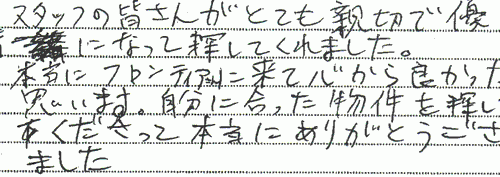 スタッフの皆さんがとても親切で優
になって探してくれました。
本当にフロンティアに来て心から良かった
思います。自分に合った物件を探し
てくださって本当にありがとうござ
ました